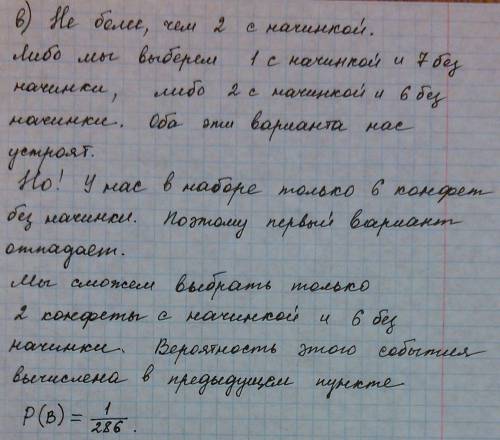 в) Не более, чем 2 с начинкой.
Либо мы выберем 1 с начинкой и 7 без
начинки, либо 2 с начинкой и 6 без
начинки. Оба эти варианта нас
устроят.
Но! У нас в наборе только 6 конфет
без начинки. Поэтому первый вариант
отпадает.
Мы сможем выбрать только
2 конфеты с начинкой и 6 без
начинки. Вероятность этого события
вычислена в предыдущем пункте
P(B) = 1/286.